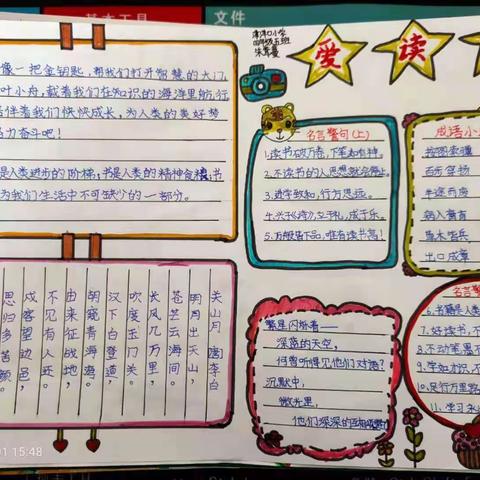 文件
四年级五班
爱读
像一把金钥匙,帮我们打开智慧的大门,
叶小舟,载着我们在知识的海洋里航行,
伴着我们快快成长,为人类的美好梦
力奋斗吧!
是人类进步的阶梯,书是人类的精神食粮,书
为我们生活中不可缺少的一部分。
名言警句(上)
1.读书破万卷,下笔如有神。
2.不读书的人思想就会停止。
3.进学致和,行方思远。
4.兴于《诗》,立于礼,成于乐。
5.万般皆下品,惟有读书高!
成语小
按图索骥
百步穿杨
半途而废
病入膏肓
草木皆兵
出口成章
关山月 唐 李白
明月出天山,
苍茫云海间。
长风几万里,
吹度玉门关。
汉下白登道,
胡窥青海湾。
由来征战地,
不见有人还。
戍客望边邑,
思归多苦颜。
繁星闪烁着——
深蓝的天空,
何曾听得见他们对语?
沉默中,
微光里,
他们深深的互相颂赞
名言警
6.书籍是人类
7.好读书,不
8.不动笔墨不
9.学如才识,不
10.足行万里路
11.学习
01 15:48